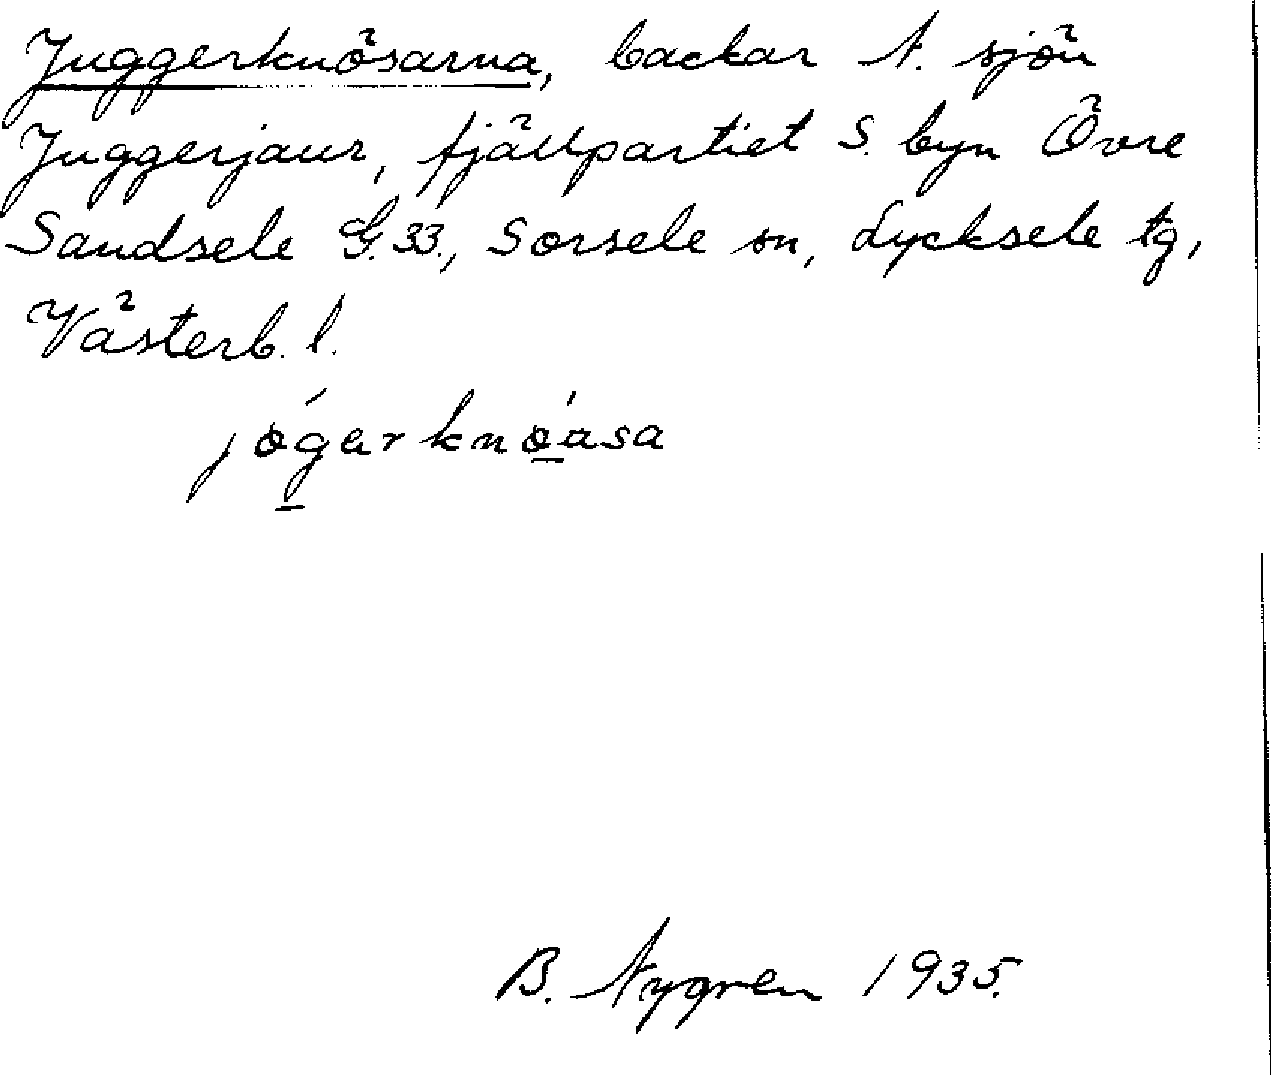 Juggerknösarna, backar N. sjön
Juggerjaur, fjällpartiet S. byn Övre
Sandsele G.33., Sorsele sn, Lycksele tg,
Västerb. l.
jógarknòása
B. Nygren 1935.